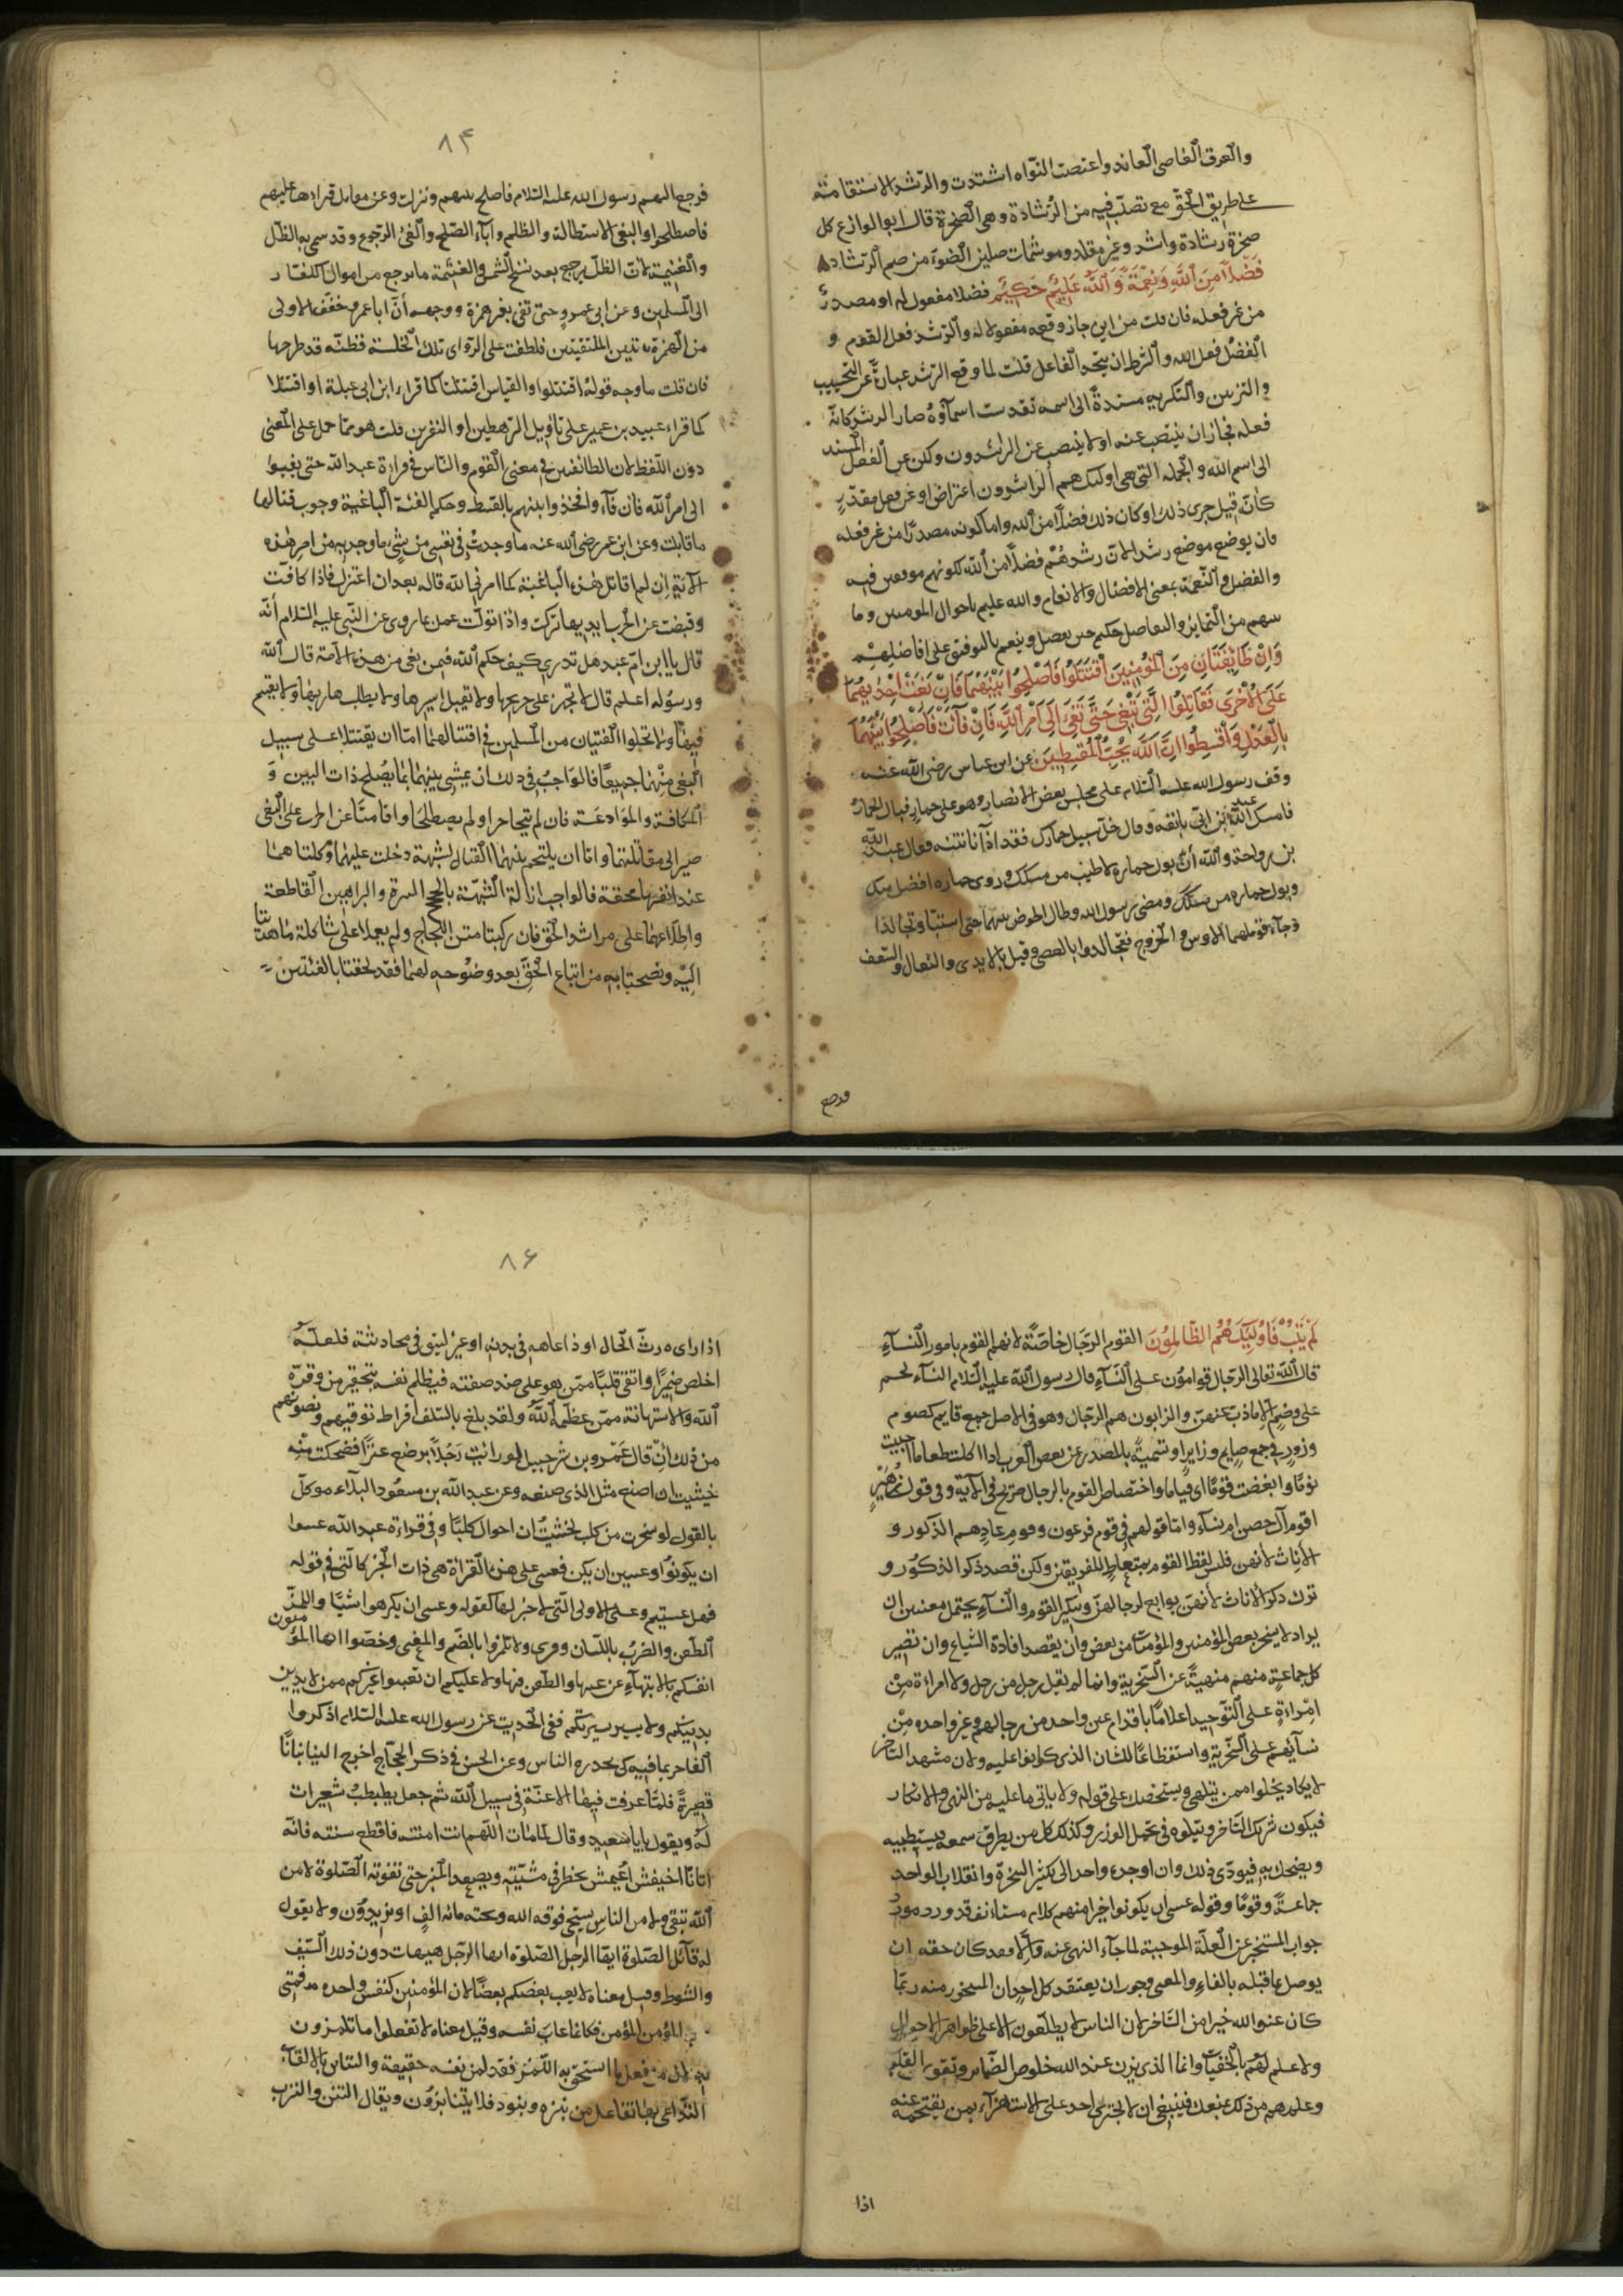 والعرق العاصي العاند واعتصت النواة اشتدت والرشد الاستقامة
على طريق الحق مع تصلب فيه من الرشادة وهي الصخرة قال ابو الوازع كل
صخرة رشادة وانشد وغير مقلد وموشمات صلين الضوء من صم الرشاد
فَضْلًا مِنَ اللَّهِ وَنِعْمَةً وَاللَّهُ عَلِيمٌ حَكِيمٌ فضلا مفعول له او مصدر
من غير فعله فان قلت من اين جاز وقوعه مفعولا له والرشد فعل القوم و
الفضل فعل الله والشرط ان يتحد الفاعل قلت لما وقع الرشد عبارة عن التحبيب
والتزيين والتكريه مسندة الى اسمه تقدست اسماؤه صار الرشد كانه
فعله فجاز ان ينتصب عنه او لا ينتصب عن الراشدون ولكن عن الفعل المسند
الى اسم الله والجملة التي هي اولئك هم الراشدون اعتراض او عن فعل مقدر
كأنه قيل جرى ذلك او كان ذلك فضلا من الله واما كونه مصدرا من غير فعله
فان يوضع موضع رشدا لان رشدهم فضلا من الله لكونهم موفقين فيه
والفضل والنعمة بمعنى الافضال والانعام والله عليم باحوال المومنين وما
بينهم من التمايز والتفاضل حكيم حين يفضل وينعم بالتوفيق على افاضلهم
وَإِنْ طَائِفَتَانِ مِنَ الْمُؤْمِنِينَ اقْتَتَلُوا فَأَصْلِحُوا بَيْنَهُمَا فَإِنْ بَغَتْ إِحْدَيهُمَا
عَلَى الْأُخْرَى فَقَاتِلُوا الَّتِي تَبْغِي حَتَّى تَفِيءَ إِلَى أَمْرِ اللَّهِ فَإِنْ فَآءَتْ فَأَصْلِحُوا بَيْنَهُمَا
بِالْعَدْلِ وَأَقْسِطُوا إِنَّ اللَّهَ يُحِبُّ الْمُقْسِطِينَ عن ابن عباس رضي الله عنه
وقف رسول الله عليه السلام على مجلس بعض الانصار وهو على حمار فبال الحمار
فامسك عبد الله ابن ابي بانفه وقال خل سبيل حمارك فقد اذانا نتنه فقال عبد الله
بن رواحة والله ان بول حماره لاطيب من مسكك وروى حماره افضل منك
وبول حماره من مسكك ومضى رسول الله وطال الخوض بينهما حتى استبا وتجالدا
وجآء قوماهما الاوس والخزرج فتجالدوا بالعصي وقيل بالايدي والنعال والسعف
فرجع
٨٤
فرجع اليهم رسول الله عليه السلام فاصلح بينهم ونزلت وعن مقاتل قراها عليهم
فاصطلحوا والبغي الاستطالة والظلم وآباء الصلح والفئ الرجوع وقد سمي به الظل
والغنيمة لان الظل يرجع بعد نسخ الشمس والغنيمة ما يرجع من اموال الكفار
الى المسلمين وعن ابي عمرو حتى تفي بغير همزة ووجهه أن ابا عمرو خفف الاولى
من الهمزتين الملتقيتين فلطفت على الراوي تلك الخلسة فظنه قد طرحها
فان قلت ما وجه قوله اقتتلوا والقياس اقتتلتا كما قراء ابن ابي عبلة او اقتتلا
كما قراء عبيد بن عمير على تأويل الرهطين او النفرين قلت هو مما حمل على المعنى
دون اللفظ لان الطائفتين في معنى القوم والناس في قراءة عبد الله حتى يفيئوا
الى امر الله فان فآءوا فخذوا بينهم بالقسط وحكم الفئة الباغية وجوب قتالها
ما قاتلت وعن ابن عمر رضي الله عنه ما وجدت في نفسي من شئ ما وجدته من امر هذه
الآية إن لم اقاتل هذه الباغية كما امرني الله قاله بعد ان اعتزل فاذا كافت
وقبضت عن الحرب ايديها تركت واذا تولت عمل بما روي عن النبي عليه السلام أنه
قال يا ابن ام عبد هل تدري كيف حكم الله فيمن بغى من هذه الامة قال الله
ورسوله اعلم قال لا تجهز على جريحها ولا تقتل اسيرها ولا يطلب هاربها ولا يقسم
فيئها ولا تخلوا الفئتان من المسلمين في اقتتالهما امّا ان يقتتلا على سبيل
البغي منهما جميعًا فالواجب في ذلك ان يمشي بينهما بما يصلح ذات البين و
المكافة والموادعة فان لم تتحاجزا ولم يصطلحا واقامتا عن اطرب على البغي
صير الى مقاتلتهما واما ان يلتحم بينهما القتال لشبهة دخلت عليهما وكلتاهما
عند انفسهما محقة فالواجب ازالة الشبهة بالحجج النيرة والبراهين القاطعة
واطلاعهما على مراشد الحق فان ركبتا متن اللجاج ولم يعملا على شاكلة ما هديتا
اليه ونصحتا به من اتباع الحق بعد وضوحه لهما فقد لحقتا بالفئتين
لَمْ يَتُبْ فَأُولَئِكَ هُمُ الظَّالِمُونَ القوم الرجال خاصّة لانهم القوم بامور النسآء
قال الله تعالى الرجال قوامون على النسآء وقال رسول الله عليه السلام النسآء لحم
على وضم الا ما ذب عنهن والذابون هم الرجال وهو في الاصل جمع قايم كصوم
وزور في جمع صايم وزاير او تسمية بالمصدر عن بعض العرب اذا اكلت طعاما احببت
نومًا وابغضت قومًا اي قياما واختصاص القوم بالرجال صريح في الآية وفي قول زهير
اقوم آل حصن ام نسآء واما قولهم في قوم فرعون وقوم عاد هم الذكور و
الأناث لأنهن فليس لفظ القوم بمتعاط للفريقين ولكن قصد ذكر الذكور و
ترك ذكر الأناث لأنهن توابع لرجالهن وتنكير القوم والنسآء يحتمل معنيين ان
يراد لا يسخر بعض المؤمنين والمؤمنات من بعض وان يقصد افادة الشياع وان تصير
كل جماعة منهم منهية عن السخرية وانما لم يقل رجل من رجل ولا امراءة من
امراءة على التوحيد اعلامًا باقدام غير واحد من رجالهم وغير واحده من
نسآئهم على السخرية واستفظاعًا للشان الذي كانوا عليه ولان مشهد الساخر
لا يكاد يخلوا ممن يتلهى ويستضحك على قوله ولا ياتي ما عليه من النهي والانكار
فيكون شريك الساخر وتلوه في تحمل الوزر وكذلك كل من يطرق سمعه فيستطيبه
ويضحك به فيودي ذلك وان اوجده واحد الى تكثير السخرة وانقلاب الواحد
جماعةً وقومًا وقوله عسى ان يكونوا خيرا منهم كلام مستانف قد ورد مورد
جواب المستخبر عن العلة الموجبة لما جآء النهي عنه والا فقد كان حقه ان
يوصل بما قبله بالفاء والمعنى وجوب ان يعتقد كل احد ان المسخور منه ربما
كان عند الله خيرا من الساخر لان الناس لا يطلعون الا على ظواهر الاحوال
ولا علم لهم بالخفيات وانما الذي يزن عند الله خلوص الضماير وتقوى القلوب
وعلمهم من ذلك بمعزل فينبغي ان لا يجترئ احد على الاستهزآء بمن يقتحمه عينه
اذا
٨٦
اذا رآى رث الحال او ذا عاهة في بدنه او غير لبيق في محادثته فلعله
اخلص ضميرًا واتقى قلبًا ممن هو على ضد صفته فيظلم نفسه بتحقير من وقره
الله والاستهانة بمن عظمه الله ولقد بلغ بالسلف افراط توقيهم وتصونهم
من ذلك ان قال عمرو بن شرحبيل لو رأيت رجلًا يرضع عنزًا فضحكت منه
خشيت ان اصنع مثل الذي صنعه وعن عبد الله بن مسعود البلاء موكل
بالقول لو سخرت من كلب لخشيت ان احوّل كلبًا وفي قراءة عبد الله عسوا
ان يكونوا وعسين ان يكن فعسى على هذه القراءة هي ذات الخبر كالتي في قوله
فهل عسيتم وعلى الاولى التي لا خبر لها كقوله وعسى ان يكرهوا شيئًا واللمز
الطعن والضرب باللسان وقرئ ولا تلمزوا بالضم والمعنى وخصوا ايها المؤمنون
انفسكم بالانتهآء عن عيبها والطعن فيها ولا عليكم ان تعيبوا غيركم ممن لا يدين
بدينكم ولا يسير بسيرتكم ففي الحديث عن رسول الله عليه السلام اذكروا
الفاجر بما فيه كي يحذره الناس وعن الحسن في ذكر الحجاج اخرج الينا بنانًا
قصيرةً قلما عرقت فيها الاعنّة في سبيل الله ثم جعل يطبطب شعيرات
له ويقول يا با سعيد وقال لما مات اللهم انت امته فاقطع سنته فانه
اتانا اخيفش اعيمش يخطر في مشيته ويصعد المنبر حتى تفوته الصلوة لا من
الله يتقي ولا من الناس يستحي فوقه الله وتحته مائة الف او يزيدون ولا يقول
له قآئل الصلوة ايها الرجل الصلوة ايها الرجل هيهات دون ذلك السيف
والسوط وقيل معناه لا يعب بعضكم بعضًا لان المؤمنين كنفس واحده فمتى
المؤمن المؤمن فكانما عاب نفسه وقيل معناه لا تفعلوا ما تلمزون
به لان من فعل ما استحق به اللمز فقد لمز نفسه حقيقة والتنابز بالالقاب
التداعي بها تفاعل من نبزه وبنود فلا يتنابزون ويقال النبز والنزب